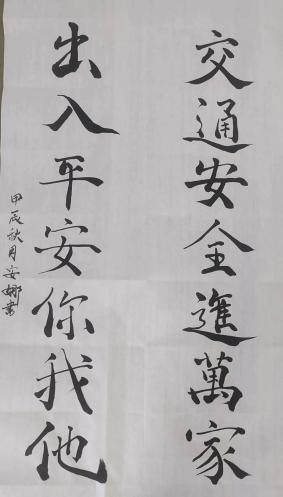 交通安全進萬家
出入平安你我他
甲辰秋月安娜書